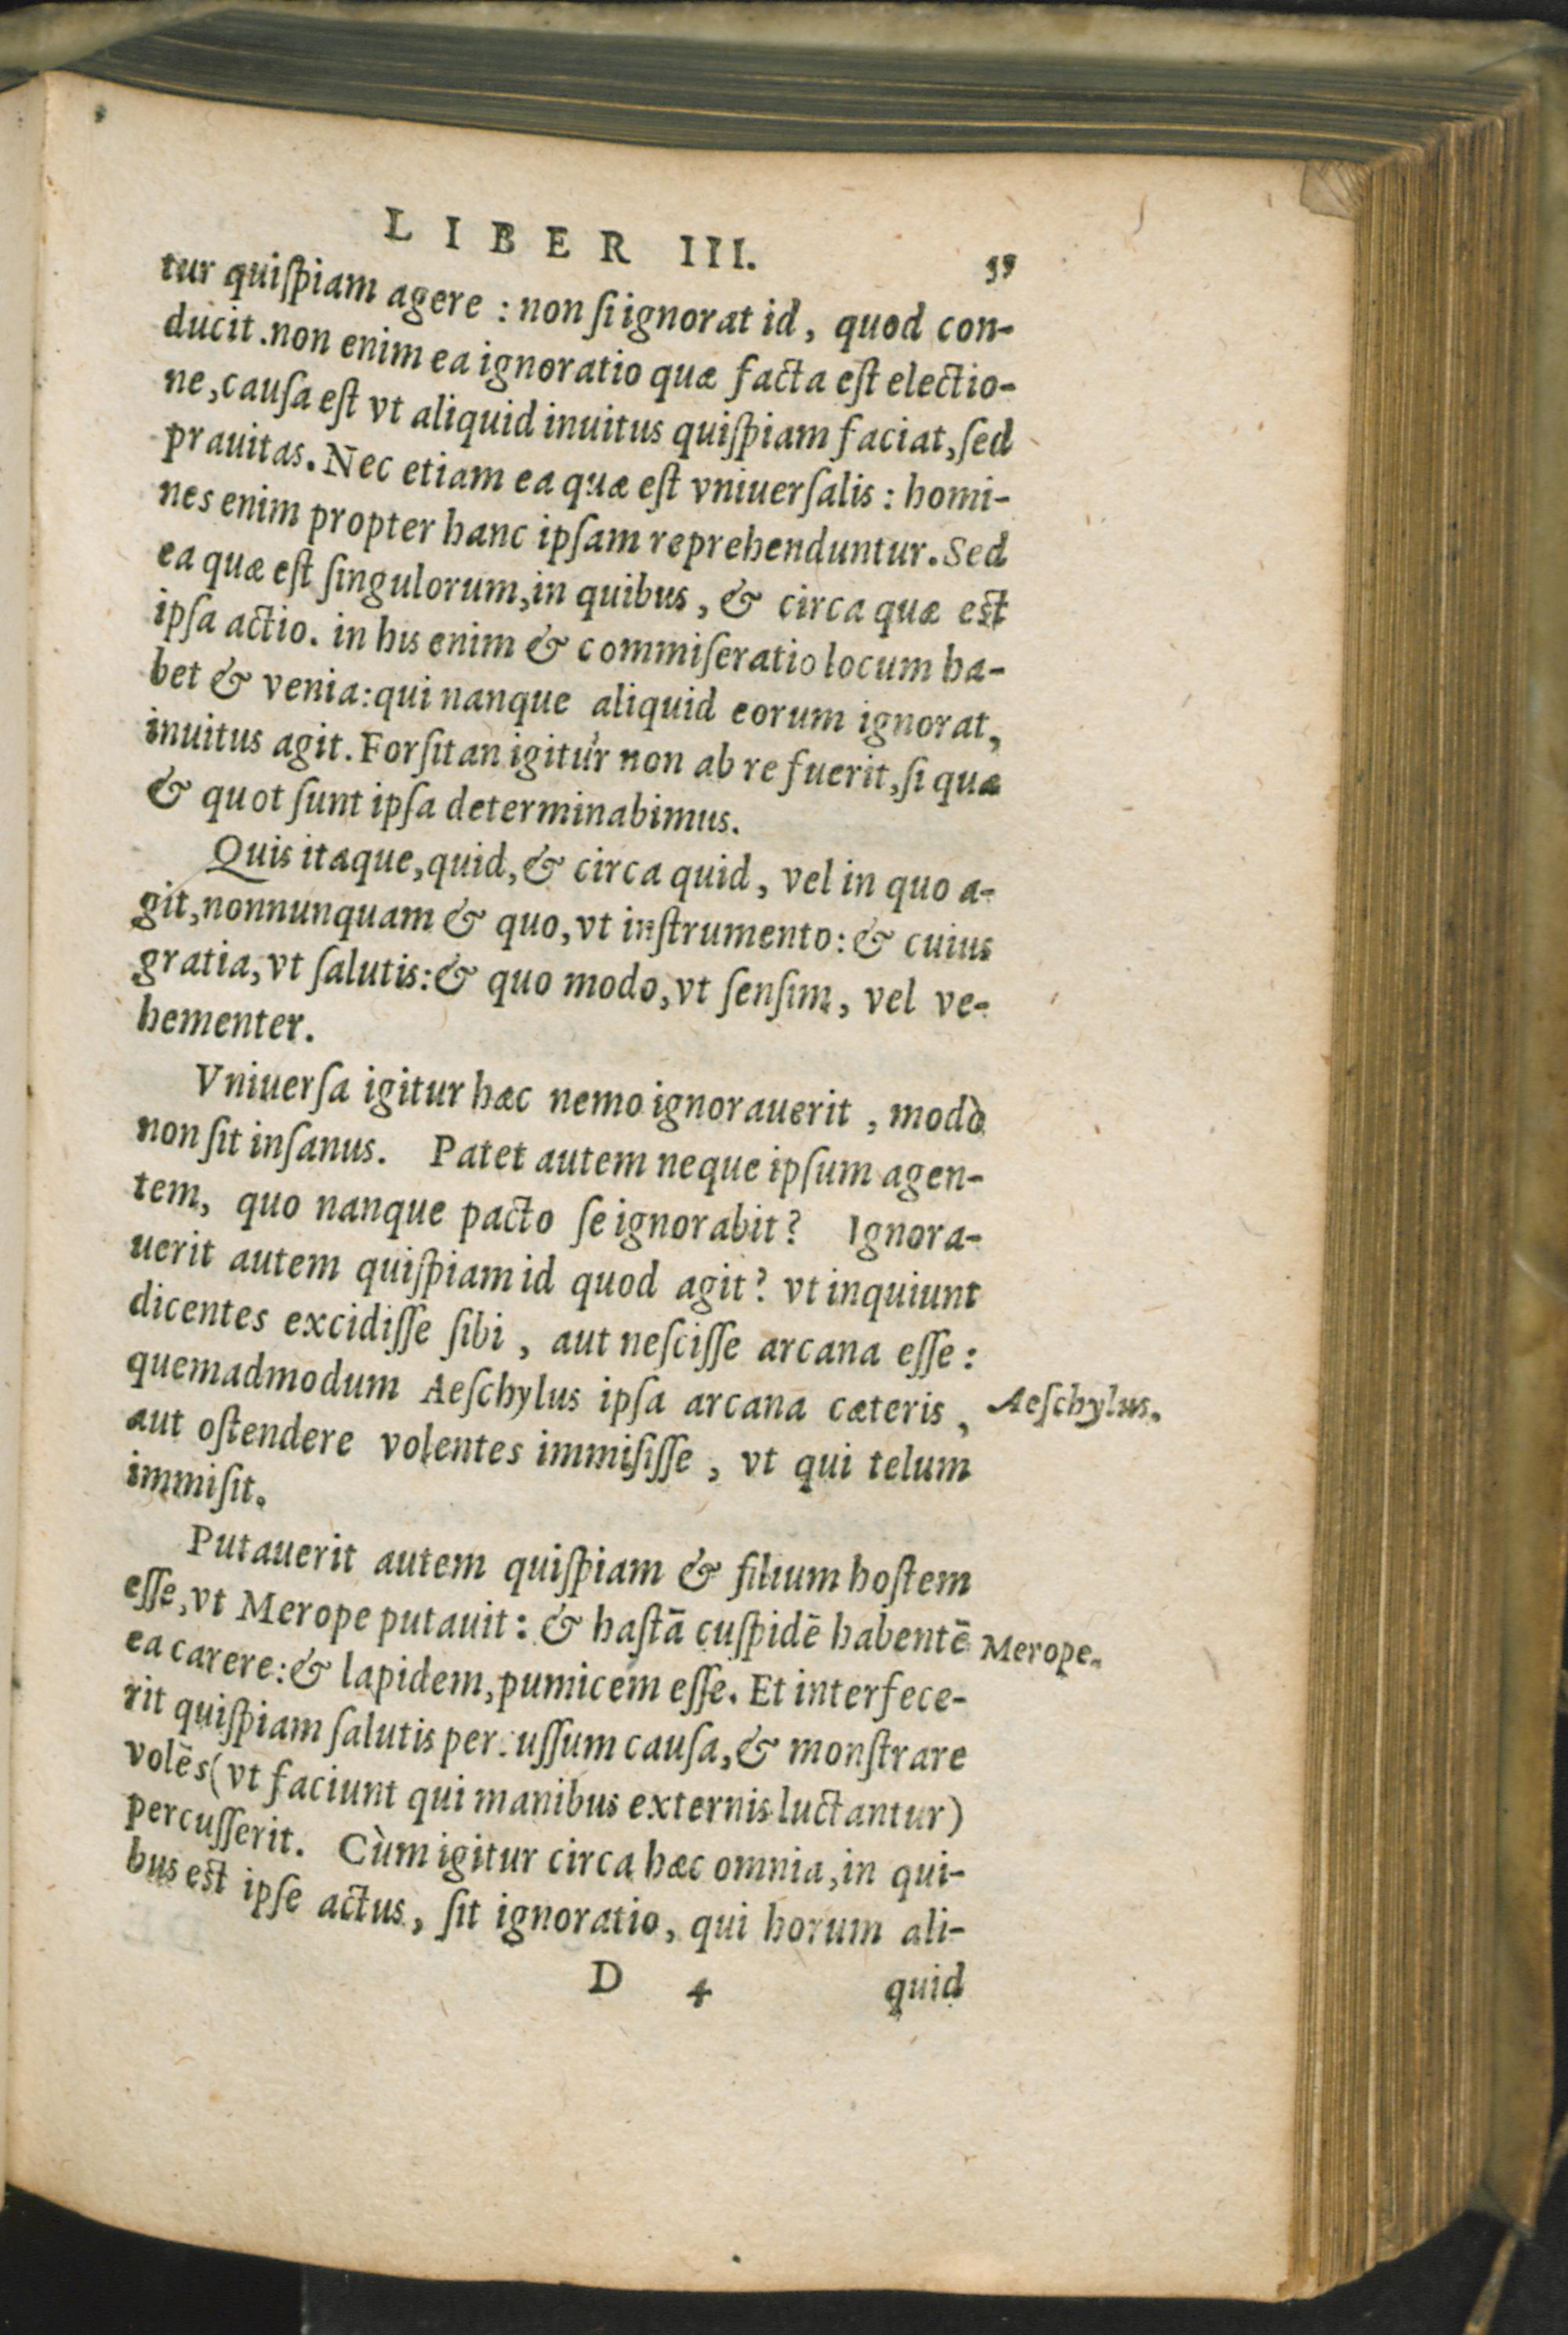 LIBER III. 55
tur quiſpiam agere : non ſi ignorat id, quod con-
ducit .non enim ea ignoratio quæ facta eſt electio-
ne, cauſa eſt vt aliquid inuitus quiſpiam faciat, ſed
prauitas. Nec etiam ea quæ eſt vniuerſalis : homi-
nes enim propter hanc ipſam reprehenduntur. Sed
ea quæ eſt ſingulorum, in quibus, & circa quæ eſt
ipſa actio. in his enim & commiſeratio locum ha-
bet & venia: qui nanque aliquid eorum ignorat,
inuitus agit. Forſitan igitur non ab re fuerit, ſi quæ
& quot ſunt ipſa determinabimus.
Quis itaque, quid, & circa quid, vel in quo a-
git, nonnunquam & quo, vt inſtrumento: & cuius
gratia, vt ſalutis: & quo modo, vt ſenſim, vel ve-
hementer.
Vniuerſa igitur hæc nemo ignorauerit, modò
non ſit inſanus. Patet autem neque ipſum agen-
tem, quo nanque pacto ſe ignorabit? Ignora-
uerit autem quiſpiam id quod agit? vt inquiunt
dicentes excidiſſe ſibi, aut neſciſſe arcana eſſe:
quemadmodum Aeſchylus ipſa arcana cæteris,
Aeſchylus.
aut oſtendere volentes immiſiſſe, vt qui telum
immiſit.
Putauerit autem quiſpiam & filium hoſtem
eſſe, vt Merope putauit: & haſtā cuſpidē habentē
Merope.
ea carere: & lapidem, pumicem eſſe. Et interfece-
rit quiſpiam ſalutis per uſſum cauſa, & monſtrare
volēs (vt faciunt qui manibus externis luctantur)
percuſſerit. Cùm igitur circa hæc omnia, in qui-
bus eſt ipſe actus, ſit ignoratio, qui horum ali-
D 4 quid